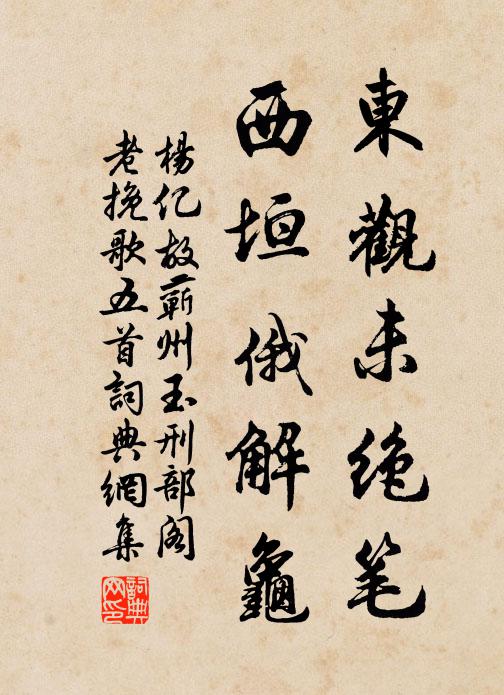 東觀未絶笔
西垣俄解龜
楊億故蘄州玉刑部阁
老挽歌五首詞典網集
詞典网印